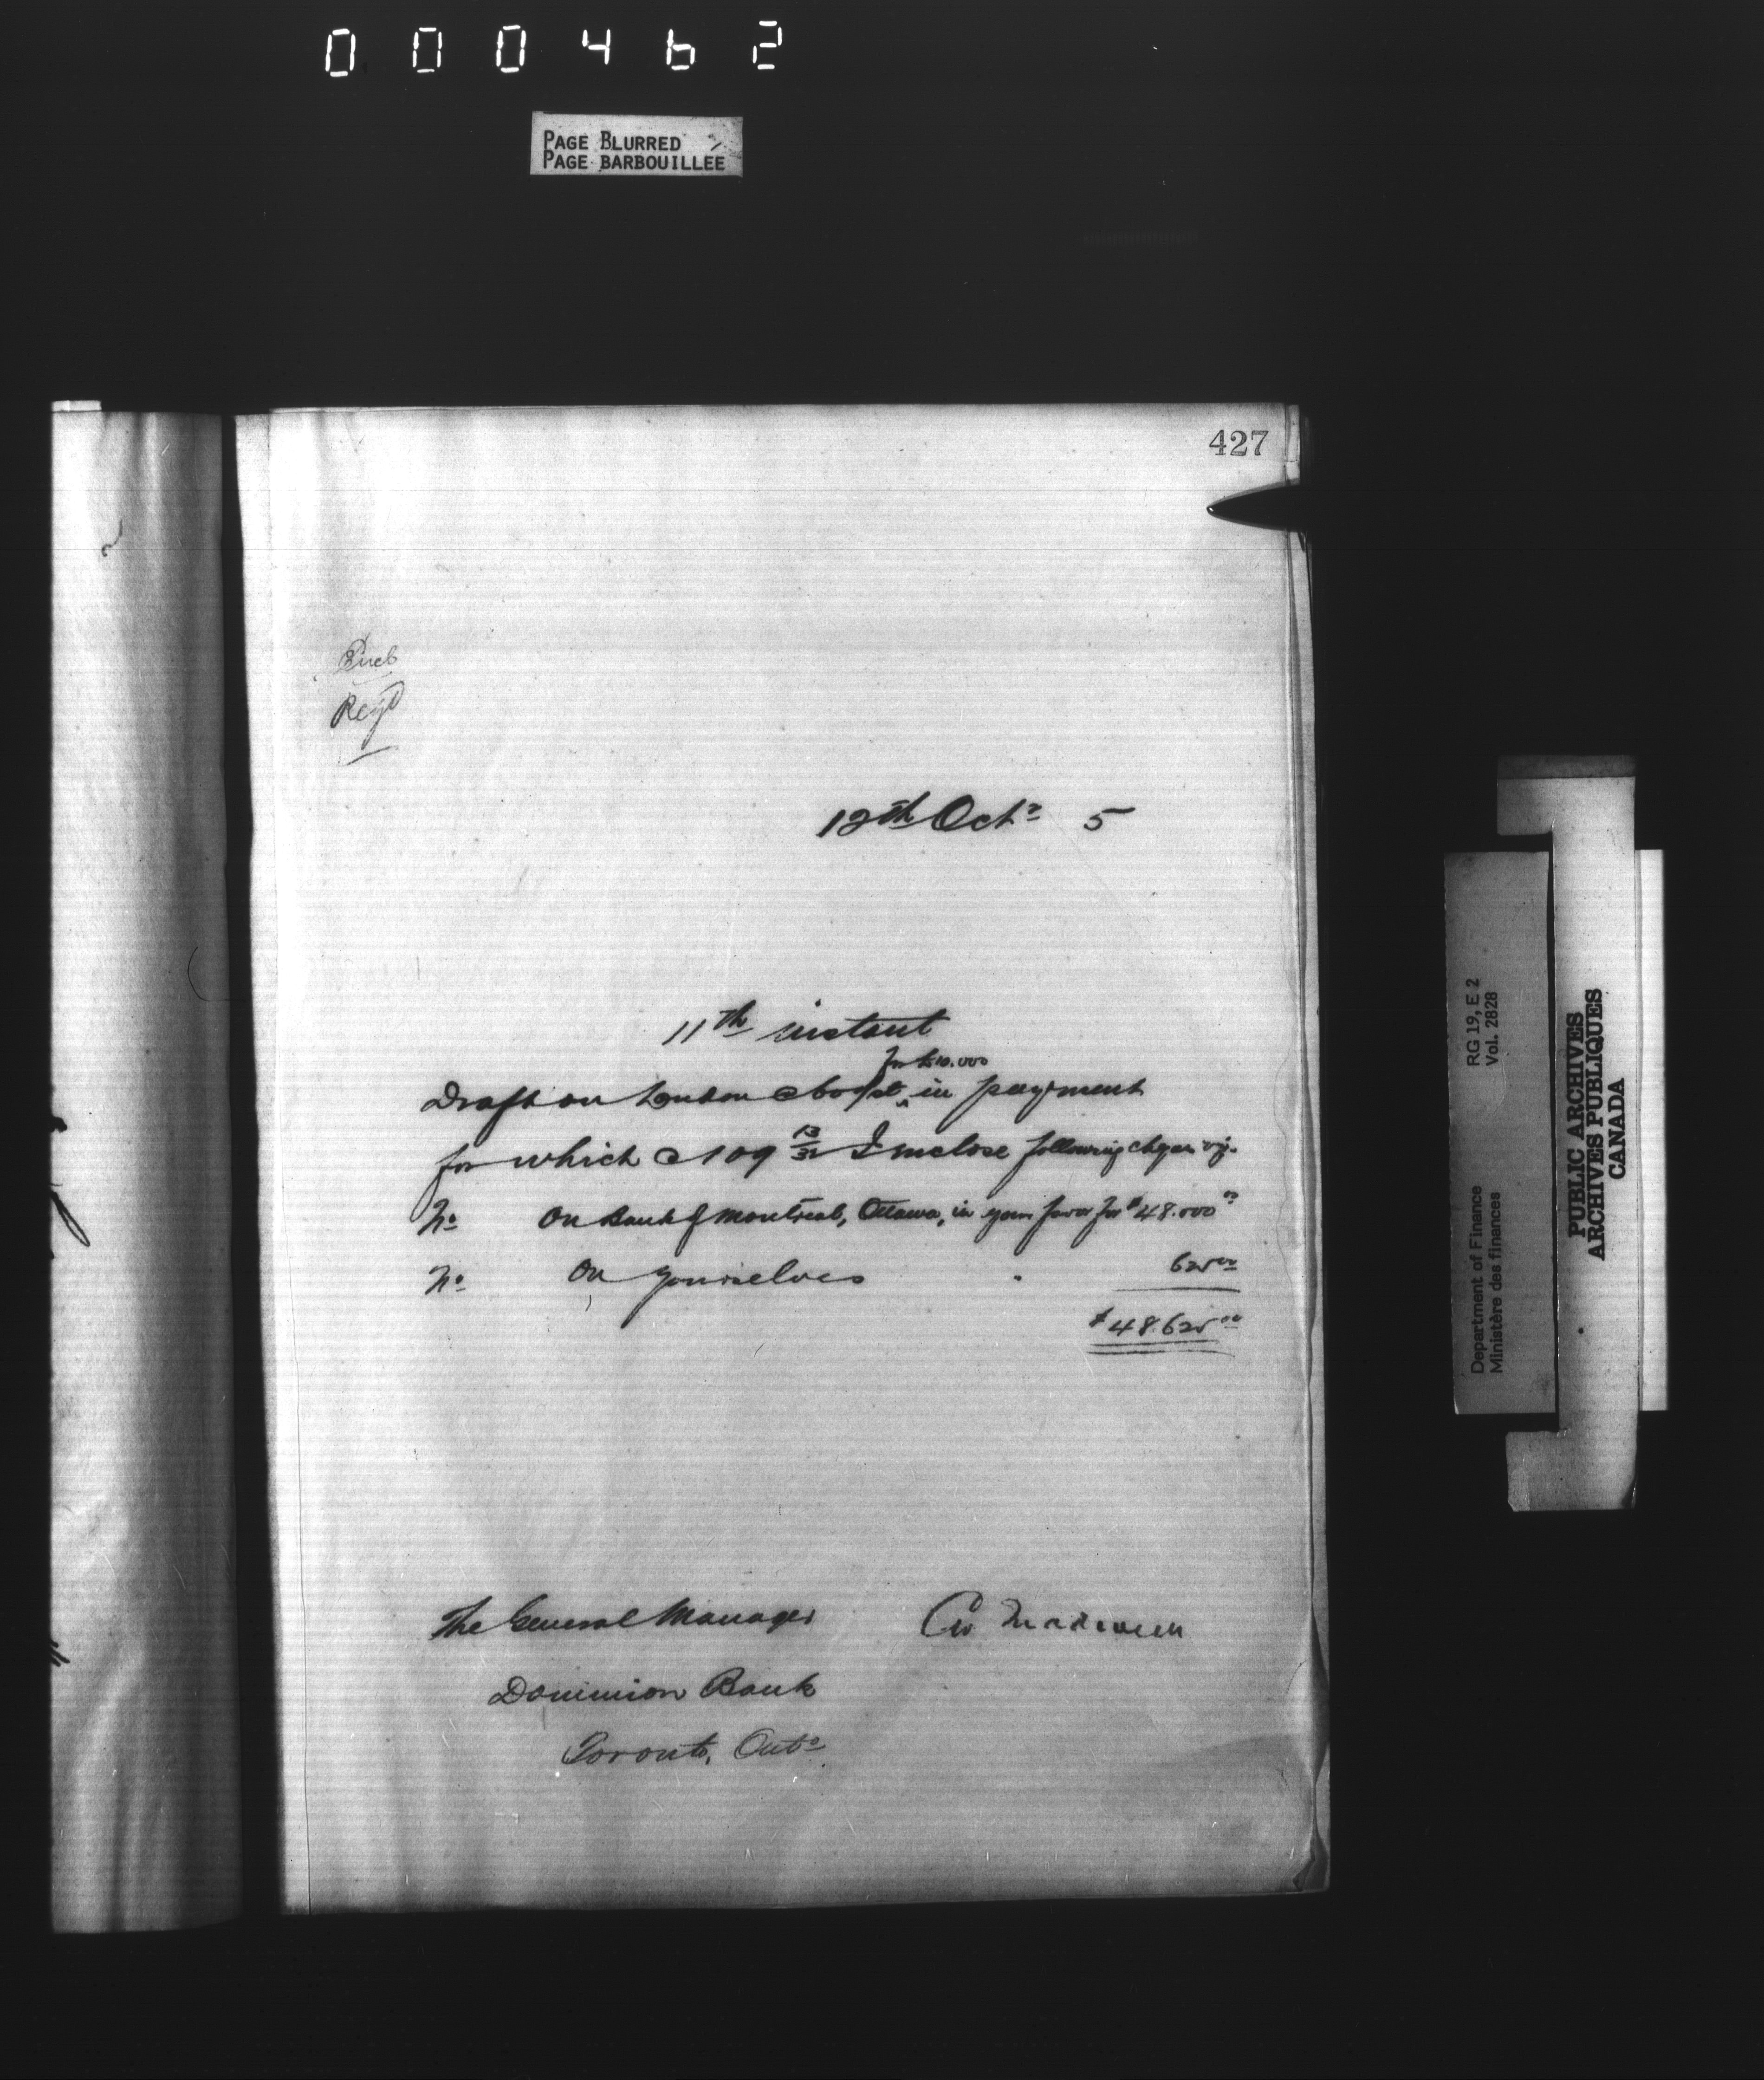 000462
PAGE BLURRED
PAGE BARBOUILLEE
427
Encl
Regd
12th Octr 5
11th instant
for £10.000
Draft on London @ 60/st in payment
for which @ 109 13/32 I inclose following cheques viz.
No On Bank of Montreal, Ottawa, in your favor for $48.000 00
No On Yourselves " 625 00
$48.625 00
The General Manager
Dominion Bank
Toronto, Onto
RG 19, E 2
Vol. 2828
Department of Finance
Ministère des finances
PUBLIC ARCHIVES
ARCHIVES PUBLIQUES
CANADA